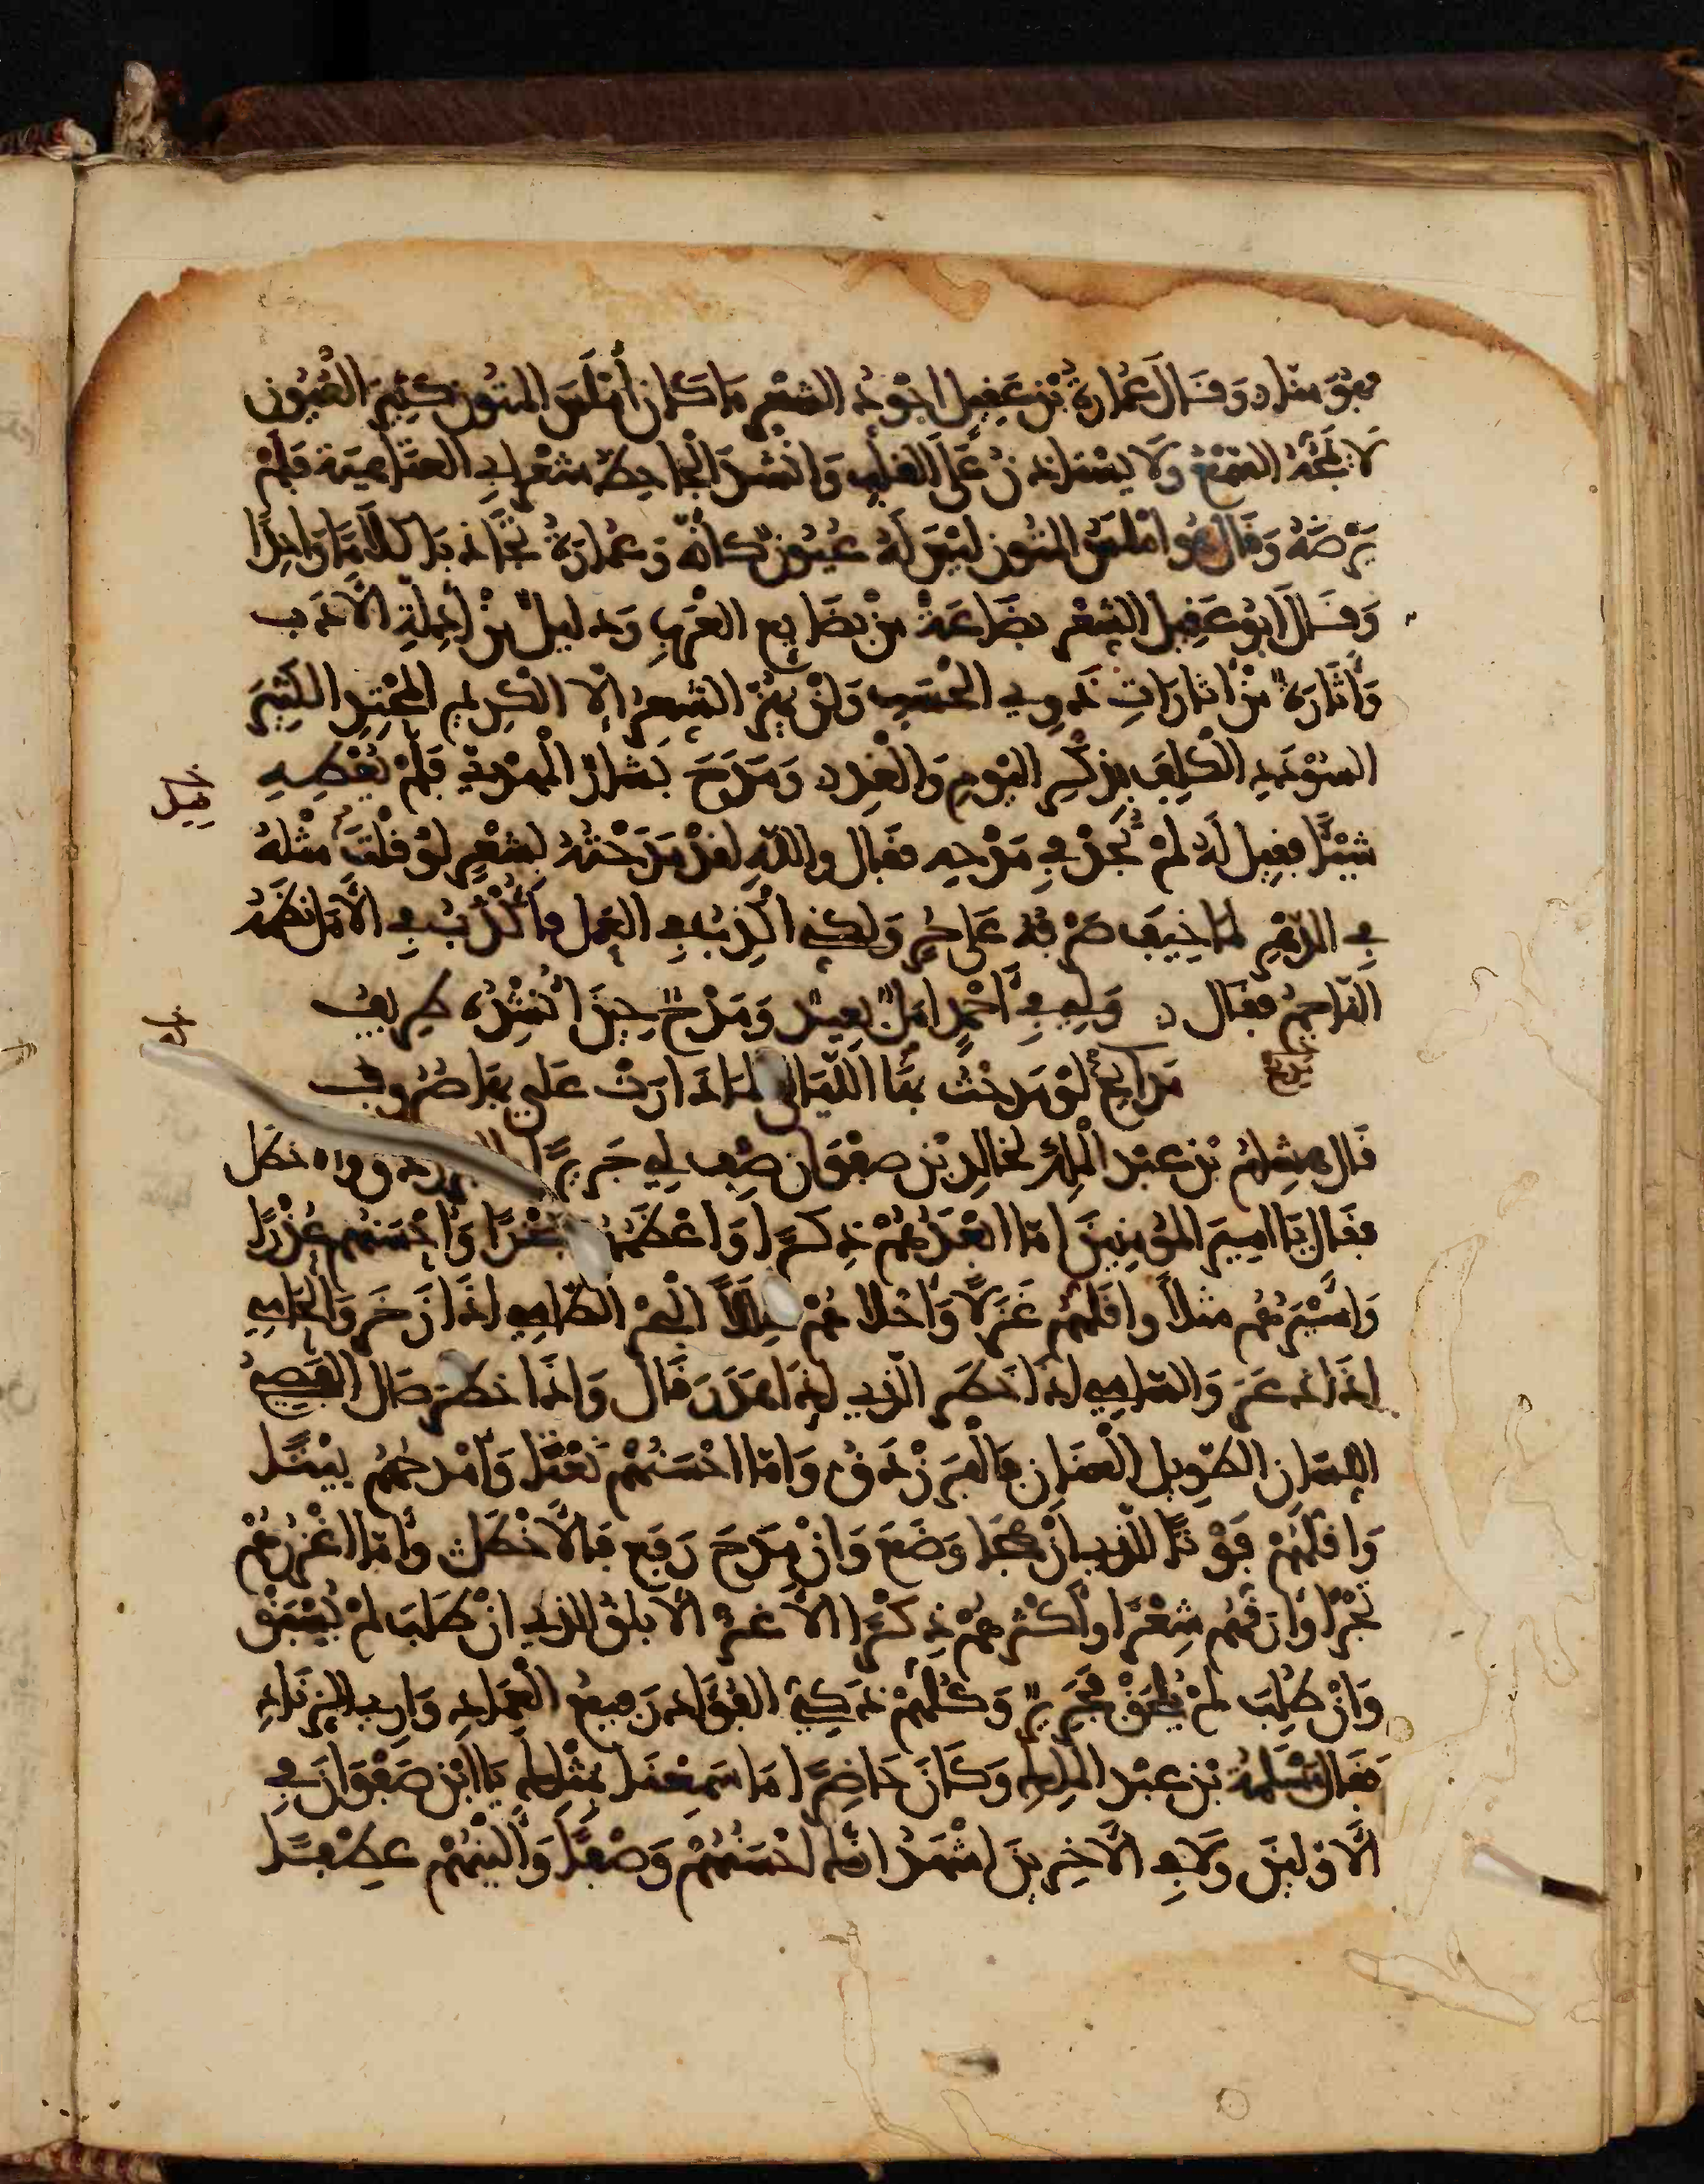 وقال عمارة بن عقيل اجود الشعر ما كان أملس المتون كثير العيون
لا يمجه السمع ولا يستاذن على القلب وانشد الجاحظ شعر ابي العتاهية فلم
يرضه وقال هو املس المتون ليس له عيون كانه وعمارة تجاذبا كلاما واحدا
وقال ابو عقيل الشعر بضاعة من بضايع العرب ودليل من ادلة الادب
واثارة من اثارات ذوي الحسب ولن يهز الشعر الا الكريم المحتد الكثير
السودد الكلف بذكر اليوم والغد ومدح بشار المهدي فلم يعطه
شيئا فقيل له لم تجد في مدحه فقال والله لقد مدحته بشعر لو قلت مثله
في الدهر لما خيف صرفه على حر ولكني اكذب في العمل فاكذب في الامل نظمه
الناجم فقال ولي في احمد امل بعيد ومدح حين انشده طريف
مدايح لو مدحت بها الليالي لما دارت علي بها صروف
قال هشام بن عبد الملك لخالد بن صفوان صف لي جريرا والاخطل
فقال يا امير المومنين اما ابعدهم ذكرا واحسنهم عذرا
واسيرهم مثلا واقلهم غزلا واحلاهم البحر الطامي اذا زخر والحامي
اذا ذعر والسامي اذا خطر الذي اذا هدر قال واذا خطر صال الفصيح
اللسان الطويل العنان فالفرزدق واما احسنهم نعتا وامدحهم بيتا
واقلهم فوتا الذي ان هجا وضع وان مدح رفع فالاخطل واما اغزرهم
بحرا وارقهم شعرا واكثرهم ذكرا الاغر الابلق الذي ان طلب لم يسبق
وان طلب لم يلحق فجرير وكلهم ذكي الفؤاد رفيع العماد واري الزناد
فقال مسلمة بن عبد الملك وكان حاضرا ما سمعنا بمثلك يا ابن صفوان في
الاولين ولا في الاخرين اشهد انك احسنهم وصفا والينهم عطفا